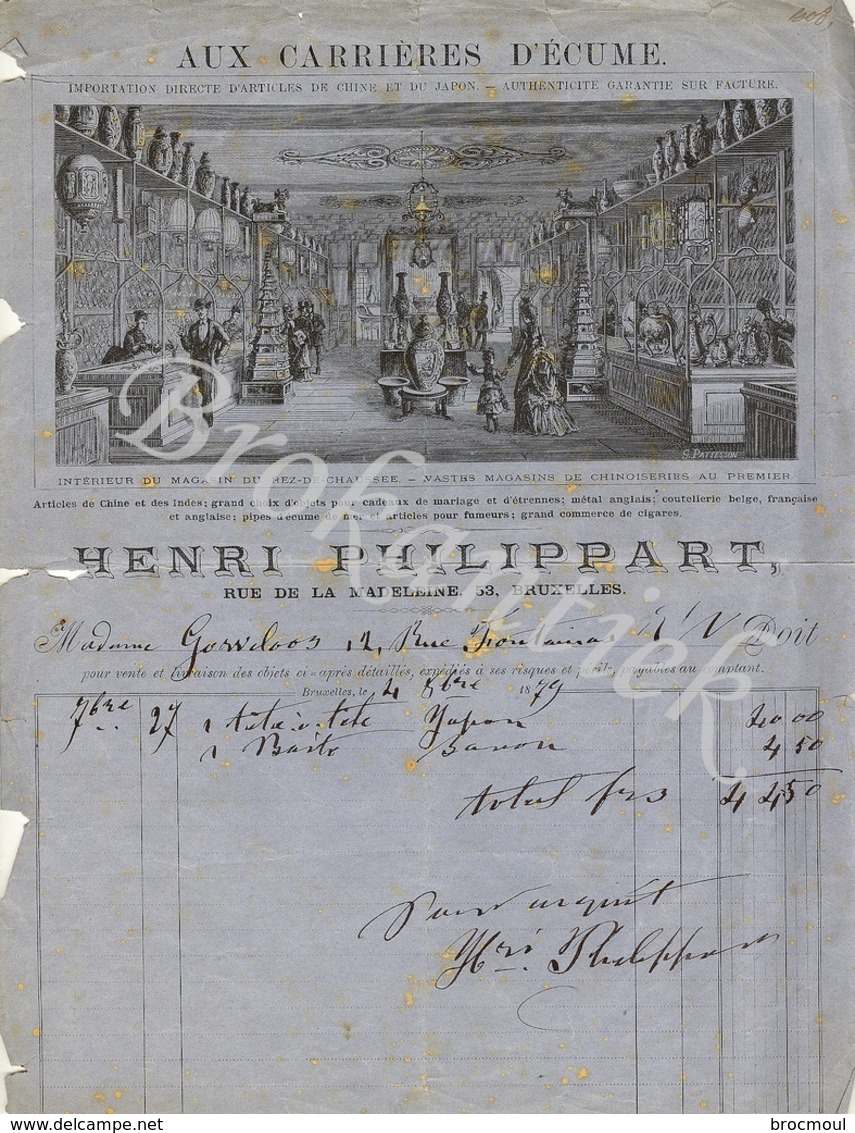 608,
AUX CARRIÈRES D'ÉCUME.
IMPORTATION DIRECTE D'ARTICLES DE CHINE ET DU JAPON. — AUTHENTICITE GARANTIE SUR FACTURE.
G. PATTESSON
INTÉRIEUR DU MAGASIN DU REZ-DE-CHAUSSÉE. — VASTES MAGASINS DE CHINOISERIES AU PREMIER.
Articles de Chine et des Indes; grand choix d'objets pour cadeaux de mariage et d'étrennes; métal anglais; coutellerie belge, française
et anglaise; pipes d'écume de mer et articles pour fumeurs; grand commerce de cigares.
HENRI PHILIPPART,
RUE DE LA MADELEINE, 53, BRUXELLES.
Madame 12, Rue Doit
pour vente et livraison des objets ci-après détaillés, expédiés à ses risques et périls, payables au comptant.
Bruxelles, le 4 8bre 1879
7bre 27 1 tête à tête Japon 40 00
1 Savon 4 50
total frs 44 50
Pour acquit
Hri Philippart
Brokantiek.
delcampe.net
brocmoul